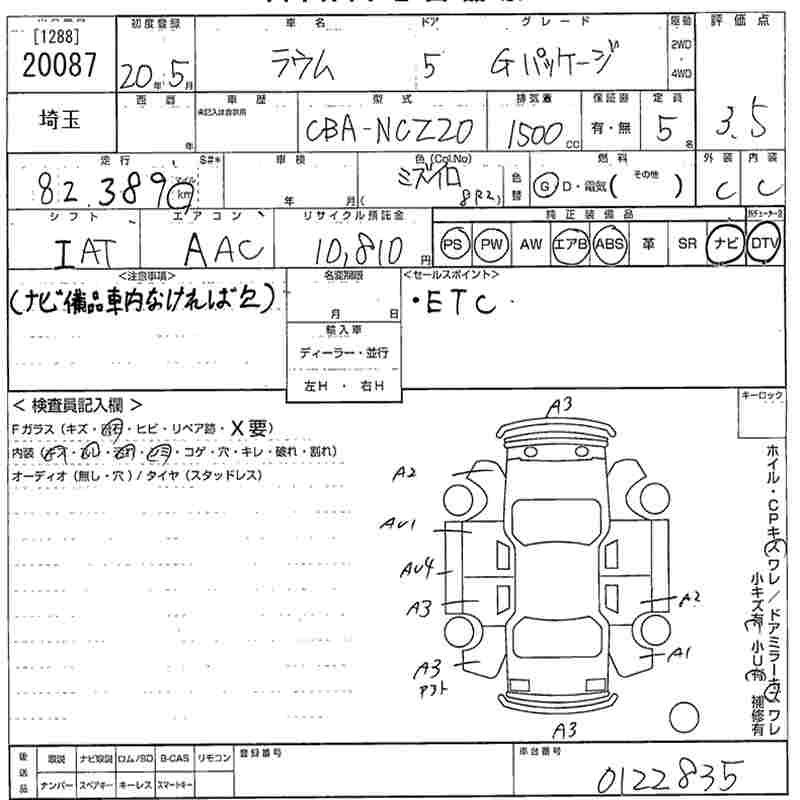 [1288]
20087
埼玉
初度登録
20年5月
車名
ラウム
ドア
5
グレード
Gパッケージ
駆動
2WD
・
4WD
評価点
3.5
西暦
年
車歴
未記入は自家用
型式
CBA-NCZ20
排気量
1500cc
保証書
有・無
定員
5名
走行
82.389
マイル
km
S#*
車検
年 月(
色(Col.No)
ミズイロ
8R2)
色替
燃料
G・D・電気(その他 )
外装
C
内装
C
シフト
IAT
エアコン
AAC
リサイクル預託金
10,810円
純正装備品
PS PW AW エアB ABS 革 SR ナビ DTV
<注意事項>
(ナビ備品車内なければ欠)
名変期限
月 日
輸入車
ディーラー・並行
左H・右H
<セールスポイント>
・ETC
<検査員記入欄>
キーロック
Fガラス(キズ・飛石・ヒビ・リペア跡・X要)
内装(・コゲ・穴・キレ・破れ・割れ)
オーディオ(無し・穴)/タイヤ(スタッドレス)
A3
A2
AU1
AU4
A3
A2
A3
アト
A1
A3
ホイル・CPキズワレ/ドアミラーキズワレ
小キズ有 小U有 補修有
後送品
取説 ナビ取説 ロム/SD B-CAS リモコン
ナンバー スペアキー キーレス スマートキー
登録番号
車台番号
0122835